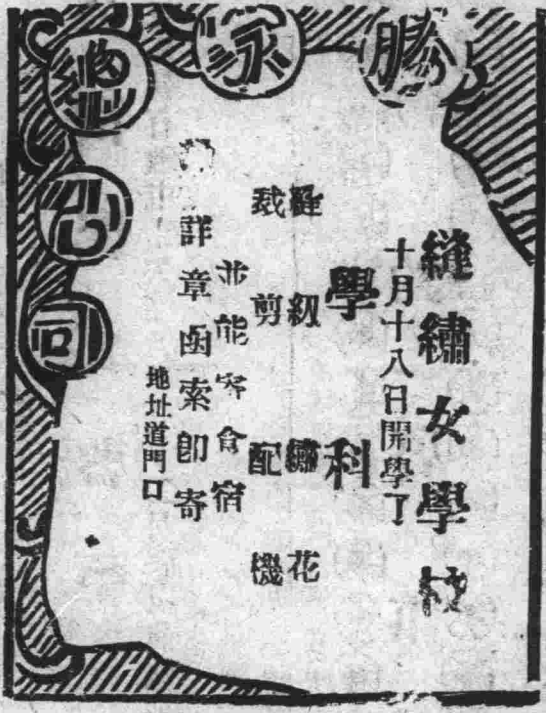 勝家總公司
縫繡女學校
十月十八日開學了
學科
縫紉 繡花
裁剪 配機
並能寄食宿
詳章函索即寄
地址道門口